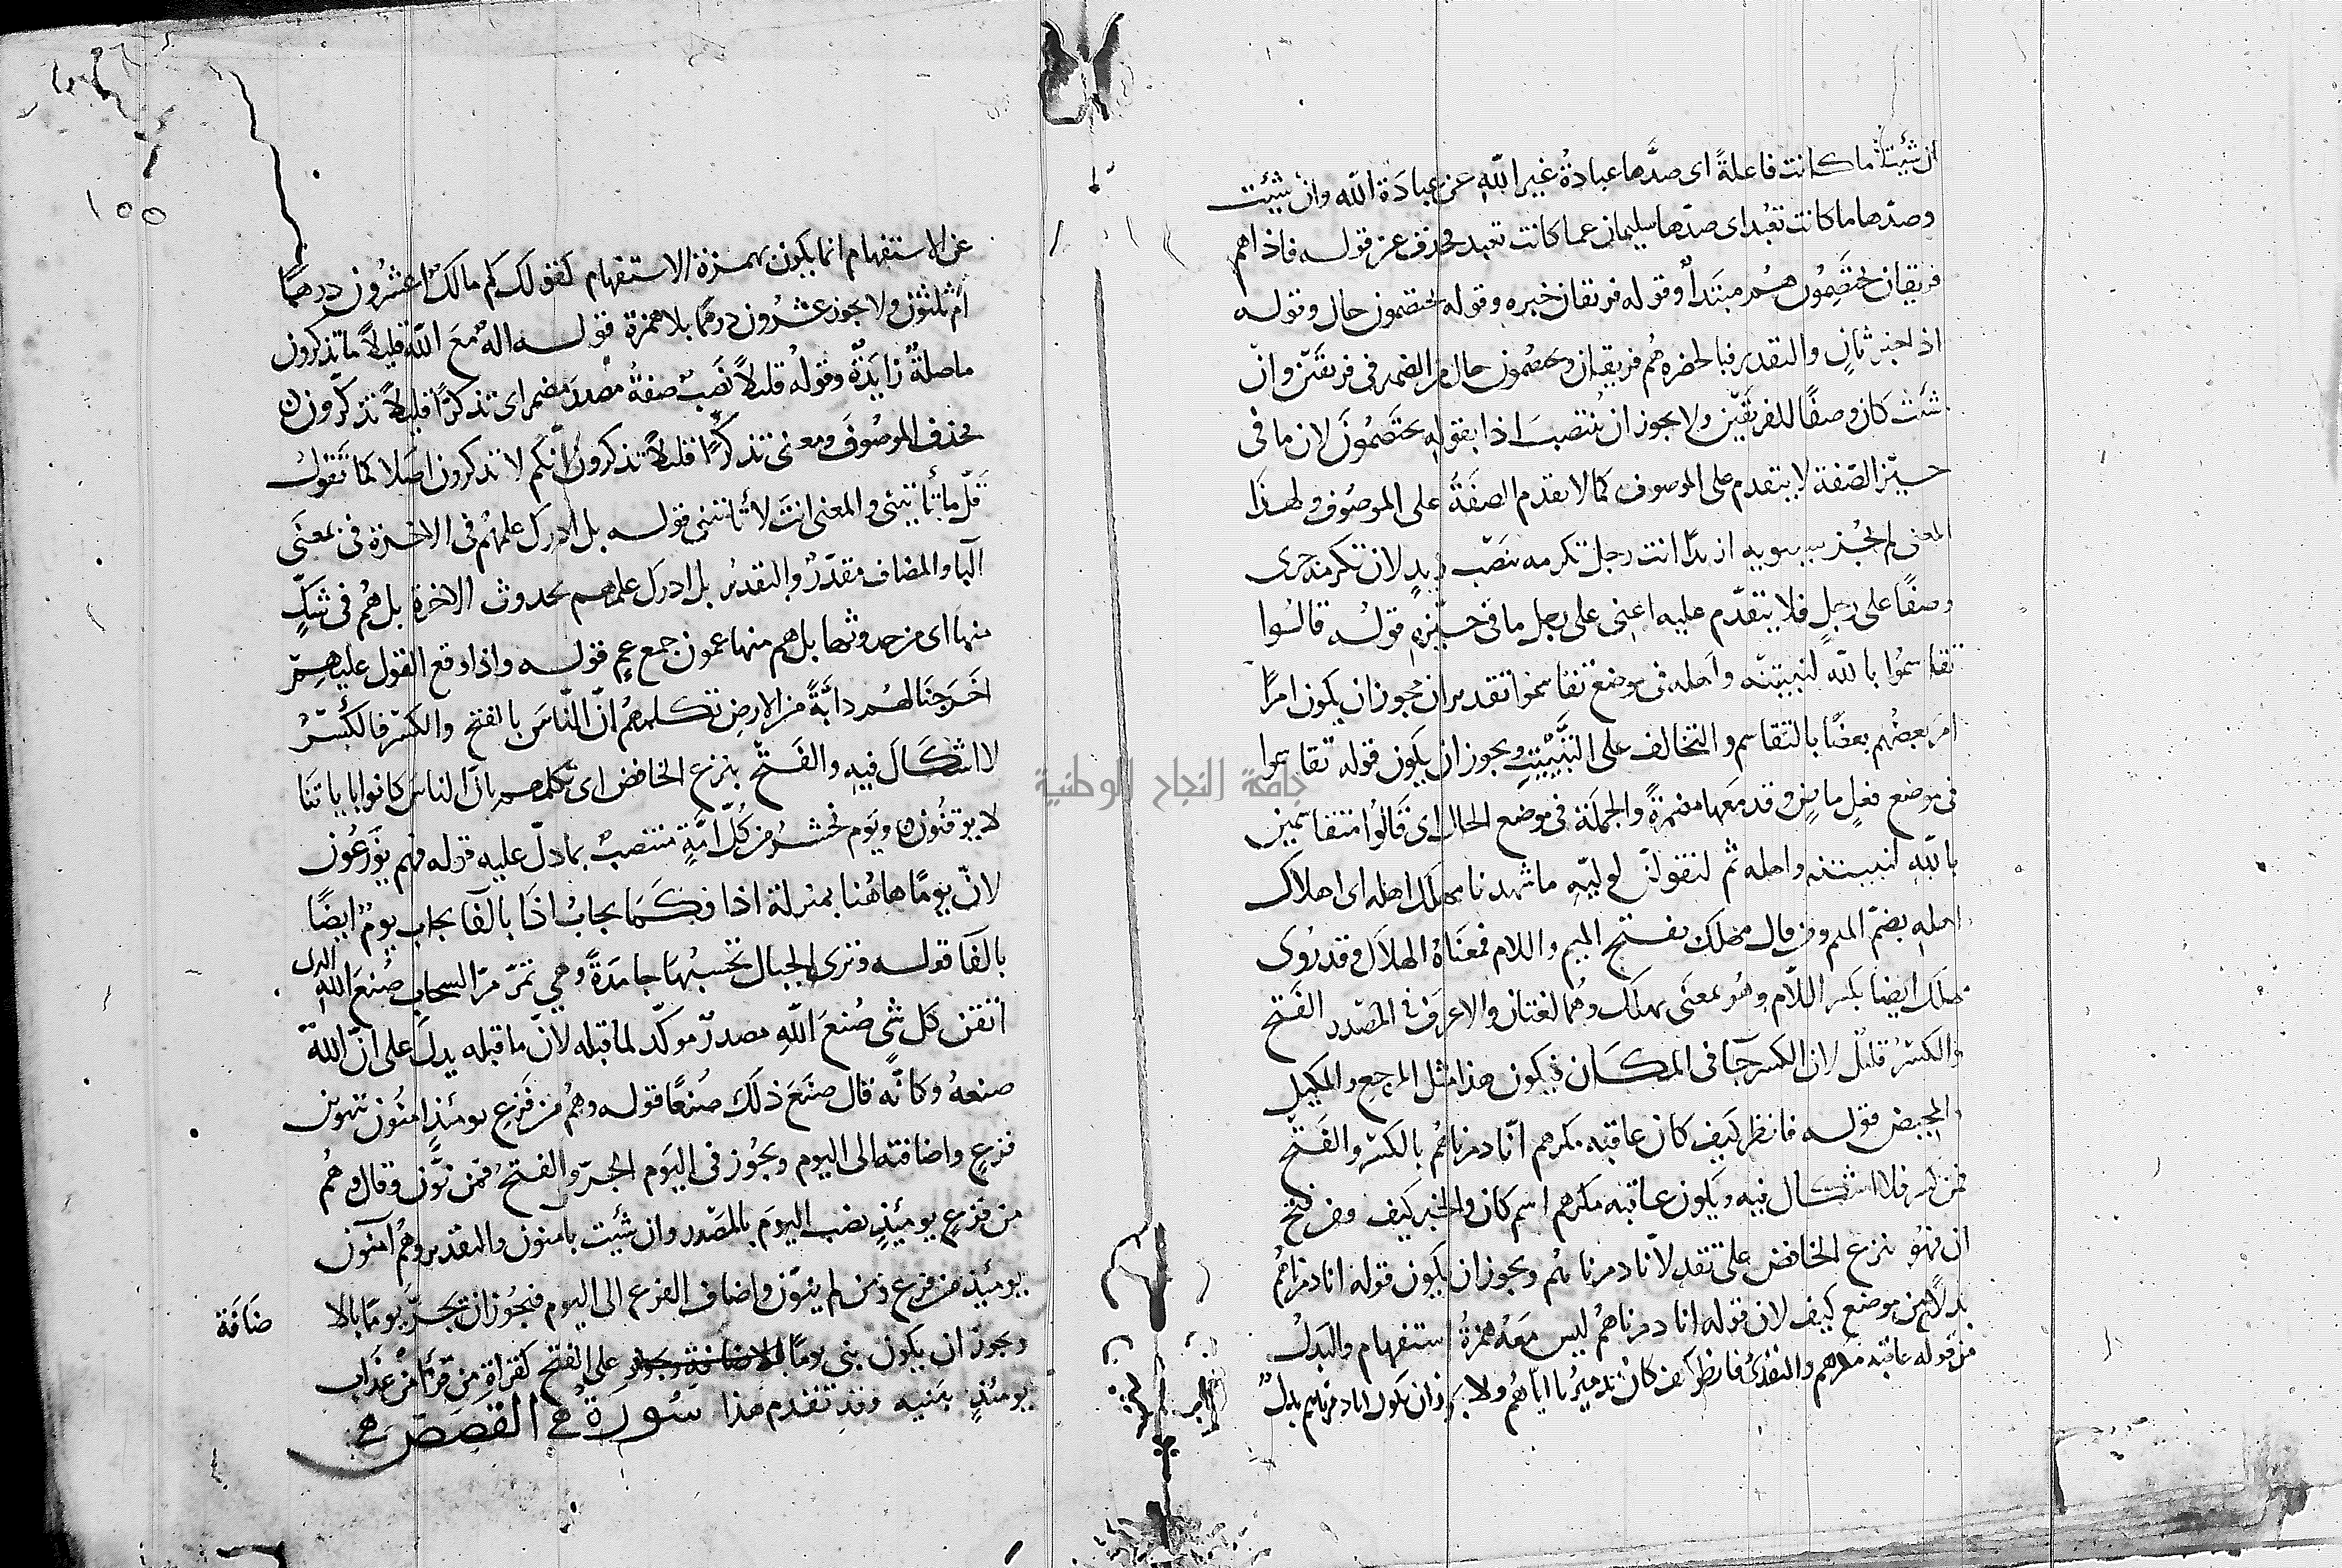 ان شئت ما كانت فاعلةً اى صدَّها عبادةُ غيرِ اللّهِ عن عبادَة الله وان شئت
وصدّها ما كانت تعبُد اى صدّها سليمان عما كانت تعبد فحذف عن قوله فاذا هم
فريقان يختَصِمُون هُم مبتَدأٌ وقوله فريقان خبره وقوله يختصمون حال وقوله
اذا خبر ثانٍ والتقدير فبالحضره هُم فريقان ويختصمُون حال من الضمير فى فريقَين وان
شئت كان وصفًا للفريقَين ولا يجوز ان يُنتصبَ اذا بقوله يختَصمُونَ لان ما فى
حيّز الصّفة لا يتقدم على الموصوف كما لا تقدم الصفَةُ على الموصُوف ولهذَا
المعنى لم يُجز سيبويه ازيدًا انت رجل تكرمه بنَصب زيدٍ لان تكرمه جرى
وصفًا على رجلٍ فلا يتقدّم عليه اعنى على رجل ما فى حيّزهِ قولُه قالُوا
تقاسمُوا باللّه لنبيتنّه واَهله فى موضع تقاسموا تقديران يجوز ان يكون امرًا
امر بعضُهم بعضًا بالتقاسم والتحالف على التبْييتِ ويجوز ان يكون قوله تقاسموا
فى موضع فعلٍ ماضٍ وقد معَها مضمرةً والجملة فى موضع الحال اى قَالُوا متقاسمين
باللّهِ لنبيتنه واهله ثم لنقولنّ لوليّهِ ما شهدنا مهلك اهله اى اهلاك
اهلهِ بضمّ الميم ومن قال مهلك بفتح الميم واللام فمعنَاهُ الهلاَك وقد رُوى
مهلك ايضا بكسر اللاّم وهُو بمعنَى مهلَك وهُما لغتان والاعرَف فى المصدر الفَتح
والكسْرُ قليلٌ لان الكسر جآ فى المكَان فيكون هذا مثل المرجع والمكيل
والمحيض قوله فانظر كيف كان عاقبه مكرهم انّا دمرناهُم بالكسر والفَتح
فمن كسر فلا اشكال فيه ويكون عاقبه مكرهم اسم كان والخبر كيف ومن فتح
ان فهُو بنزع الخافض على تقدير لانّا دمرناهُم ويجوز ان يكون قوله انا دمرناهُم
بدلاً من موضع كيف لان قوله انا دمرناهُم ليس معَهُ همزةُ استفهام والبَدلُ
من قوله عاقبة مكرهم والتقديرُ فانظر كيف كان تدميرُنا ايّاهُم ولا يجوز ان يكون انا دمرناهم بدلٌ
١٥٥
عن الاستفهام انما يكون بهمزة الاستفهام كقولك كم مالكَ اعشرُون درهمًا
اَم ثلثون ولا يجوز عشرُون درهمًا بلا همزة قوله اله مَعَ اللّه قليلاً ما تذكرون
ما صلةٌ زايدَةٌ وقولهُ قليلاً نصَب صفةُ مصْدرَ مضمر اى تذكرًا قليلاً تذكّرون
فحذف الموصُوفَ ومعنى تذكّرًا قليلاً تذكرونُ انّكم لا تذكرون اصَلا كما تَقولُ
قَلّ ما تأتينى والمعنى انتَ لا تأتينى قوله بل ادرك علمهُم فى الاخرة فى بمعنَى
البا والمضاف مقدّرٌ والتقديرُ بل ادرك علمهم بحدوث الاخرة بل هُم فى شكٍّ
منها اى من حدوثها بل هم منها عمون جمع عمٍ قوله واذا وقع القول عليهم
اَخرجنَا لهُم دابَّةً من الارضِ تكلمهُم انّ النّاسَ بالفتح والكسر فالكَسْرُ
لا اشكَالَ فيهِ والفَتح بنزع الخافض اى تكلمهم بانّ الناسَ كانوا باياتنَا
لا يوقنُون ويَوم نحشرُ من كُلّ امَّةٍ منتصبٌ بما دلّ عليه قوله فهم يُوَزعُون
لانّ يومًا هاهُنا بمنزلة اذا فكَمَا يجابُ اذَا بالفَآ يجاب يومٌ ايضًا
بالفآ قوله وترى الجبال تحسبُهَا جامدَةً وهى تمرّ مرّ السحاب صُنعَ اللهِ الذى
اتقن كل شئ صُنعَ اللهِ مصدرٌ موكّد لما قبله لانّ ما قبله يدلّ على انّ اللهَ
صنعهُ وكانّه قال صنَعَ ذلك صُنعًا قوله وهُم من فَزعٍ يومئذٍ امنُون تنوين
فزعٍ واضافته الى اليوم ويجُوز فى اليَوم الجرّ والفتحُ فمن نَوّن وقال وهُم
من فزعٍ يومَئذٍ نصب اليومَ بالمصدر وان شئت بامنون والتقدير وهُم آمنون
يومئذٍ من فزع ومن لم ينوّن واضاف الفزع الى اليوم فيجُوز ان تجرَّ يومًا بالا
ضَافَة
ويجوز ان يكون بنى يومًا على الفتح كقراةِ من قرَأ من عذَاب
يومئذٍ بَنيه وقد تقدم هذا سُورَةُ القصَصْ
جامعة النجاح الوطنية